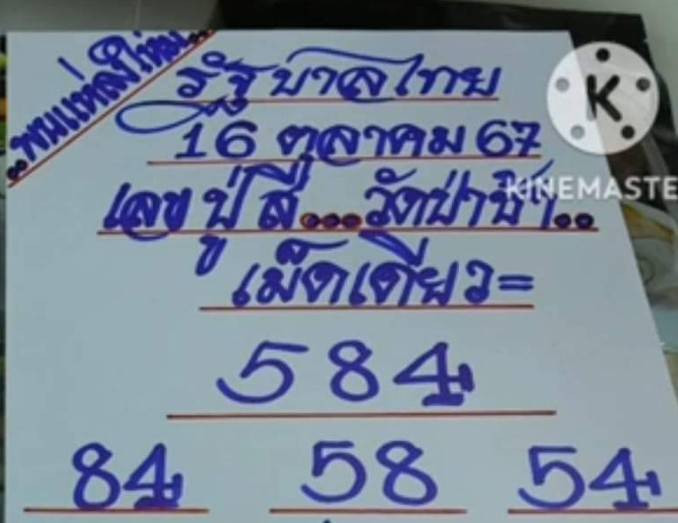 รัฐบาลไทย
16 ตุลาคม 67
เลขปู่สี...วัดป่าช้า..
เม็ดเดียว=
584
84 58 54
K
KINEMASTE